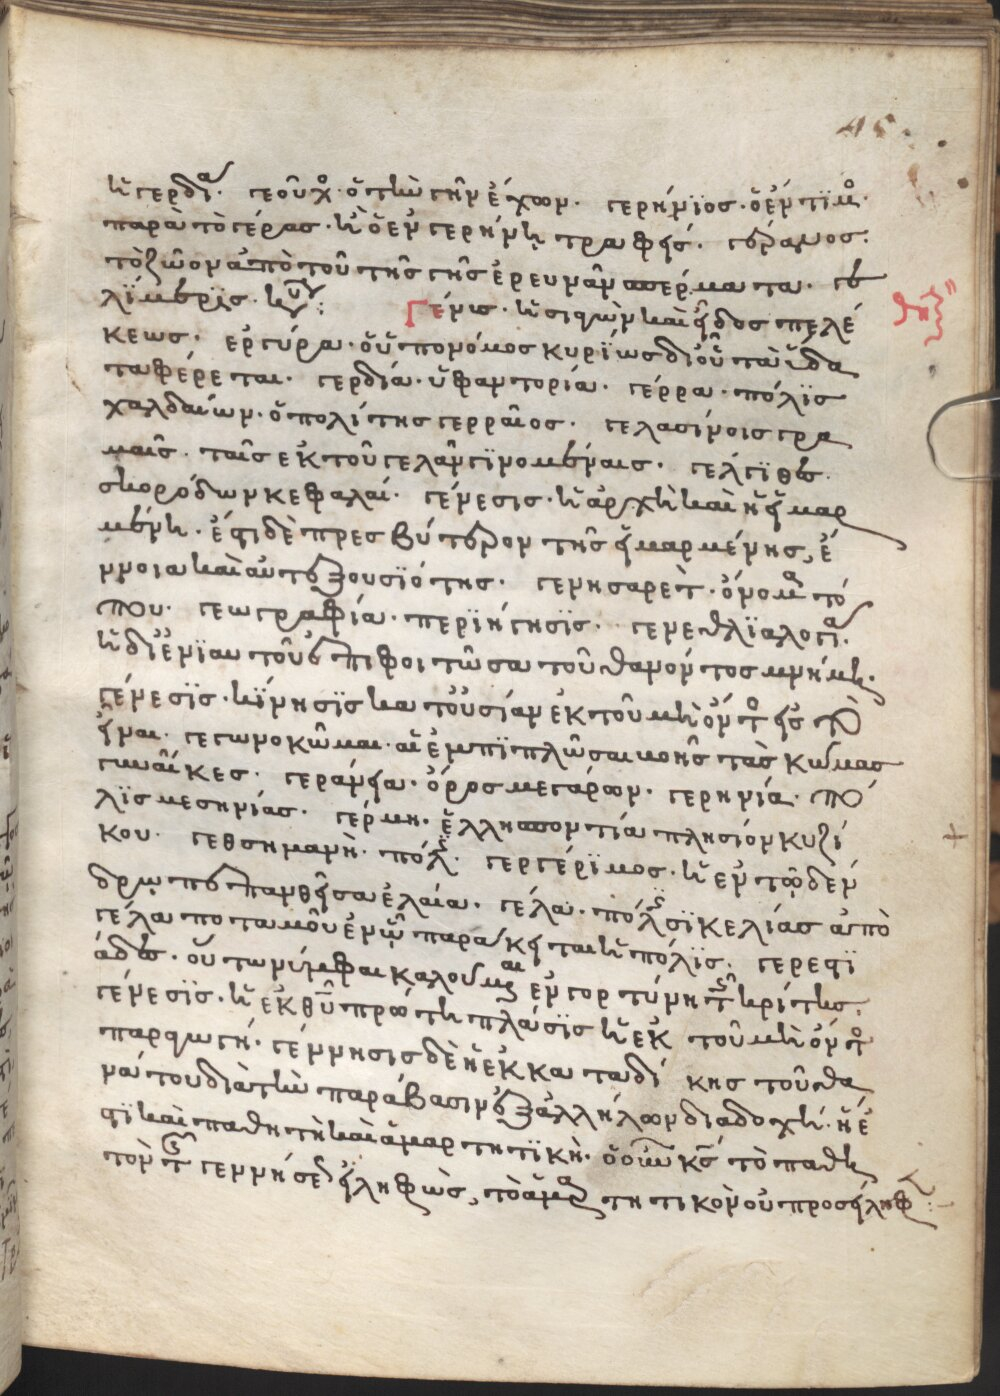 45
ἢ γερδία. γεοῦχος. ὁ τὴν γῆν ἔχων. γερήνιος. ὁ ἔντιμος.
παρὰ τὸ γέρας. ἢ ὁ ἐν γερήνῃ τραφείς. γέρανος.
τὸ ζῶον ἀπὸ τοῦ τῆς γῆς ἐρευνᾶν σπέρματα.
Γένις. ἡ σιφὼν καὶ εἶδος πελέ
κεως. γεργύρα. ὁ ὑπονόμος κυρίως δι' οὗ τὰ ὕδα
τα φέρεται. γερδιά. ὑφαντορία. γέρρα. πόλις
χαλδαίων. ὁ πολίτης γερραῖος. γελασίνοις γρα
μαῖς. ταῖς ἐκ τοῦ γελᾶν γινομέναις. γέλγιθες.
σκορόδων κεφαλαί. γένεσις. ἡ ἀρχὴ καὶ ἡ εἱμαρ
μένη. ἔστι δὲ πρεσβύτερον τῆς εἱμαρμένης, ἔ
ννοια καὶ αὐτεξουσιότης. γενησαρέτ. ὄνομα τό
που. γεωγραφία. περιήγησις. γενεθλιαλογία.
ἡ δι' ἐνιαυτοῦ ἐπιφοιτῶσα τοῦ θανόντος μνήμη.
γένεσις. κίνησις κατ' οὐσίαν ἐκ τοῦ μὴ ὄντος εἰς τὸ
εἶναι. γεγωνοκῶμαι. αἱ ἐμπιπλῶσαι βοῆς τὰς κώμας
γυναῖκες. γεράνεια. ὄρος μεγάρων. γερηνία. πό
λις μεσηνίας. γέρμη. ἑλλησποντία πλησίον κυζί
κου. γεθσημανὴ. πόλις. γεργέριμος. ἡ ἐν τῷ δέν
δρῳ πεπανθεῖσα ἐλαία. γέλα. πόλις σικελίας ἀπὸ
γέλα ποταμοῦ ἐν ᾧ παράκειται ἡ πόλις. γερεστι
άδες. οὕτω νύμφαι καλούμεναι ἐν γορτύνῃ τῆς κρήτης.
γένεσις. ἡ ἐκ θεοῦ πρώτη πλάσις ἢ ἐκ τοῦ μὴ ὄντος
παραγωγή. γέννησις δὲ ἡ ἐκ καταδί κης τοῦ θα
νάτου διὰ τὴν παράβασιν ἐξ ἀλλήλων διαδοχή. ἥ ἐ
στι καὶ παθητὴ καὶ ἁμαρτητική. ὁ οὖν κύριος τὸ παθη
τὸν τῆς γεννήσεως εἰληφὼς, τὸ ἁμαρτητικὸν οὐ προσείληφε